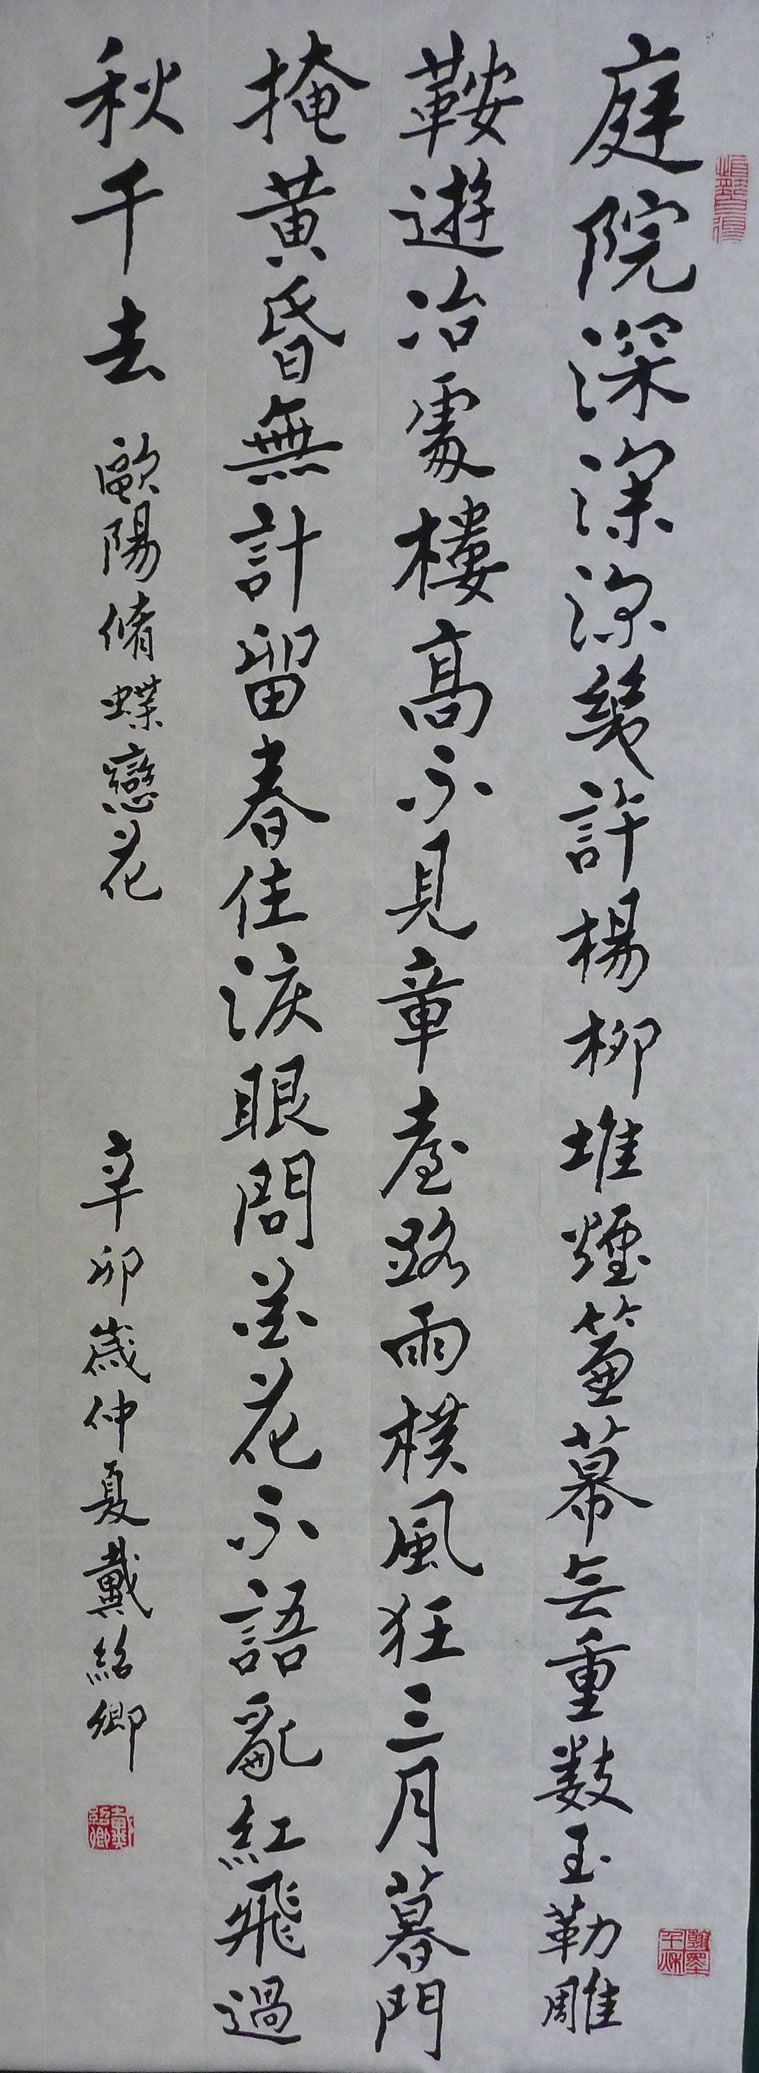 庭院深深深幾許楊柳堆煙簾幕無重數玉勒雕
鞍遊冶處樓高不見章臺路雨橫風狂三月暮門
掩黃昏無計留春住淚眼問花花不語亂紅飛過
秋千去 歐陽脩蝶戀花 辛卯歲仲夏戴紹卿
戴紹卿
翰墨千秋